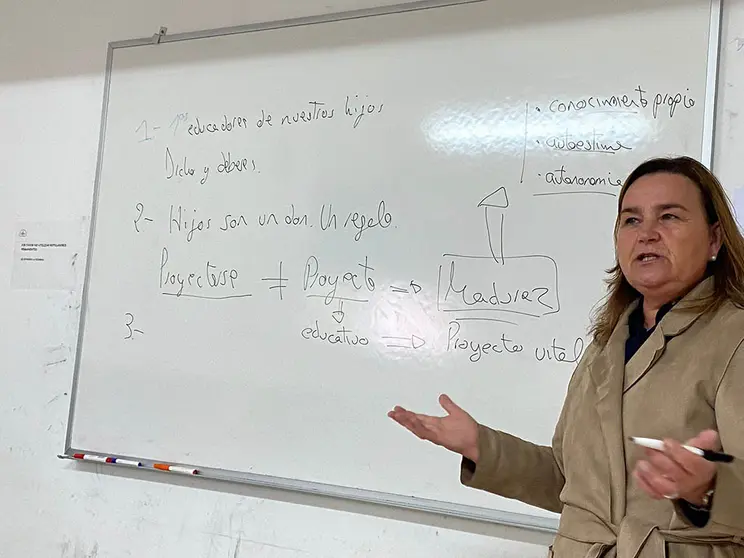 1-1os educadores de nuestros hijos
Dicho y deberes.
2- Hijos son un don. Un regalo.
Proyectarse ≠ Proyecto ⇒ Madurez
educativo ⇒ Proyecto vital
3.-
· conocimiento propio
· autoestima
· autonomía